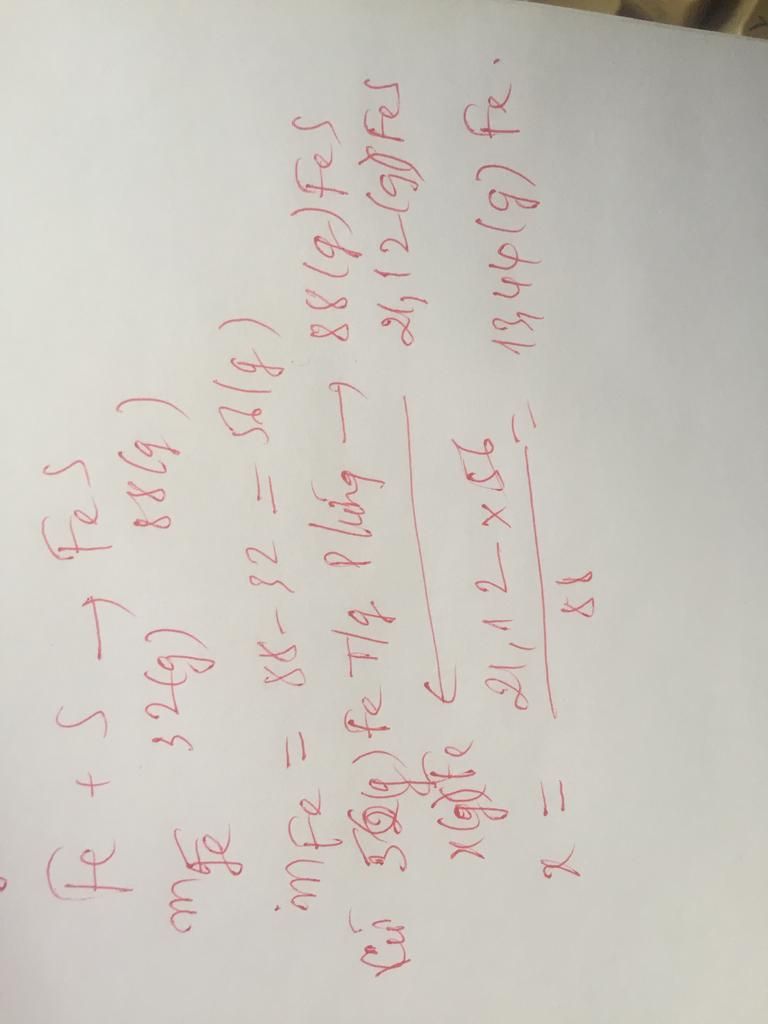 Fe + S → FeS
mFe 32(g) 88(g)
mFe = 88 - 32 = 56(g)
Cứ 56(g) Fe T/g P/ứng → 88(g) FeS
x(g) Fe ← 21,12(g) FeS
x = 21,12 x 56 / 88 = 13,44(g) Fe.